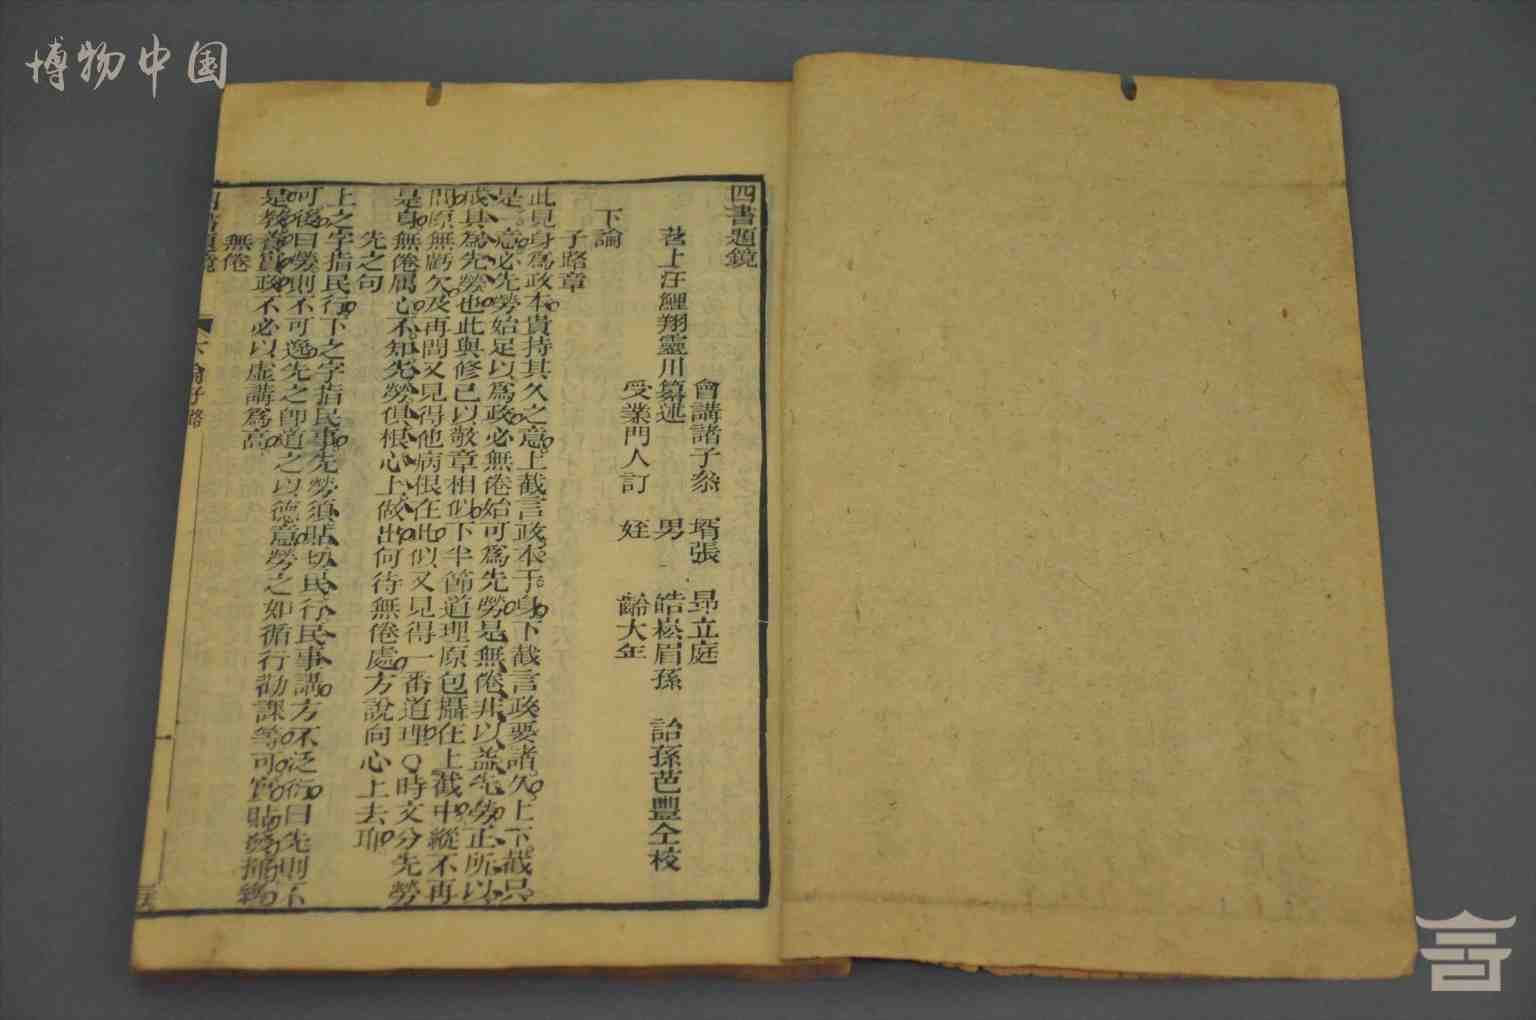 博物中国
四書題鏡
會講諸子叅 壻張 昂立庭
苕上汪鯉翔靈川纂述 男 皓崧眉孫 詒孫芑豐仝校
受業門人訂 姪 齡大年
下論
子路章
此見身爲政本貴持其久之意上截言政本于身下截言政要諸久上下截只
是一意必先勞始足以爲政必無倦始可爲先勞是無倦非以益先勞正所以
成其爲先勞也此與修已以敬章相似下半節道理原包攝在上截中縱不再
問原無虧欠及再問又見得他病根在此似又見得一番道理○時文分先勞
是身無倦屬心不知先勞俱根心上做出何待無倦處方說向心上去耶
先之句
上之字指民行下之字指民事先勞須貼切民行民事講方不泛衍曰先則不
可後曰勞則不可逸先之卽道之以德意勞之如循行勸課等可實貼發揮總
是敎養實政不必以虛講爲高
無倦
四書題鏡 下論子路